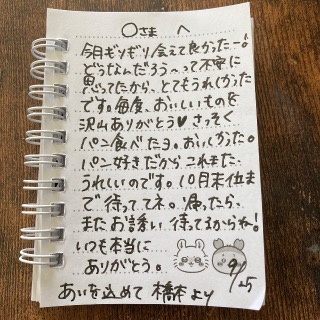 〇さま へ
今日ギリギリ会えて良かったー!
どうなんだろう〜って不安に
思ってたから、とてもうれしかった
です。毎度、おいしいものを
沢山ありがとう♥ さっそく
パン食べたヨ。おいしかった。
パン好きだからこれまた、
うれしいのです。10月末位ま
で待っててネ。帰ったら、
またお誘い待ってるからね!
いつも本当に
ありがとう。
9/25
あいを込めて 橋本より